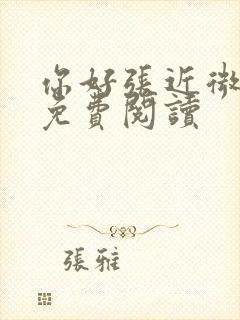 你好張近微
免費閱讀
張雅